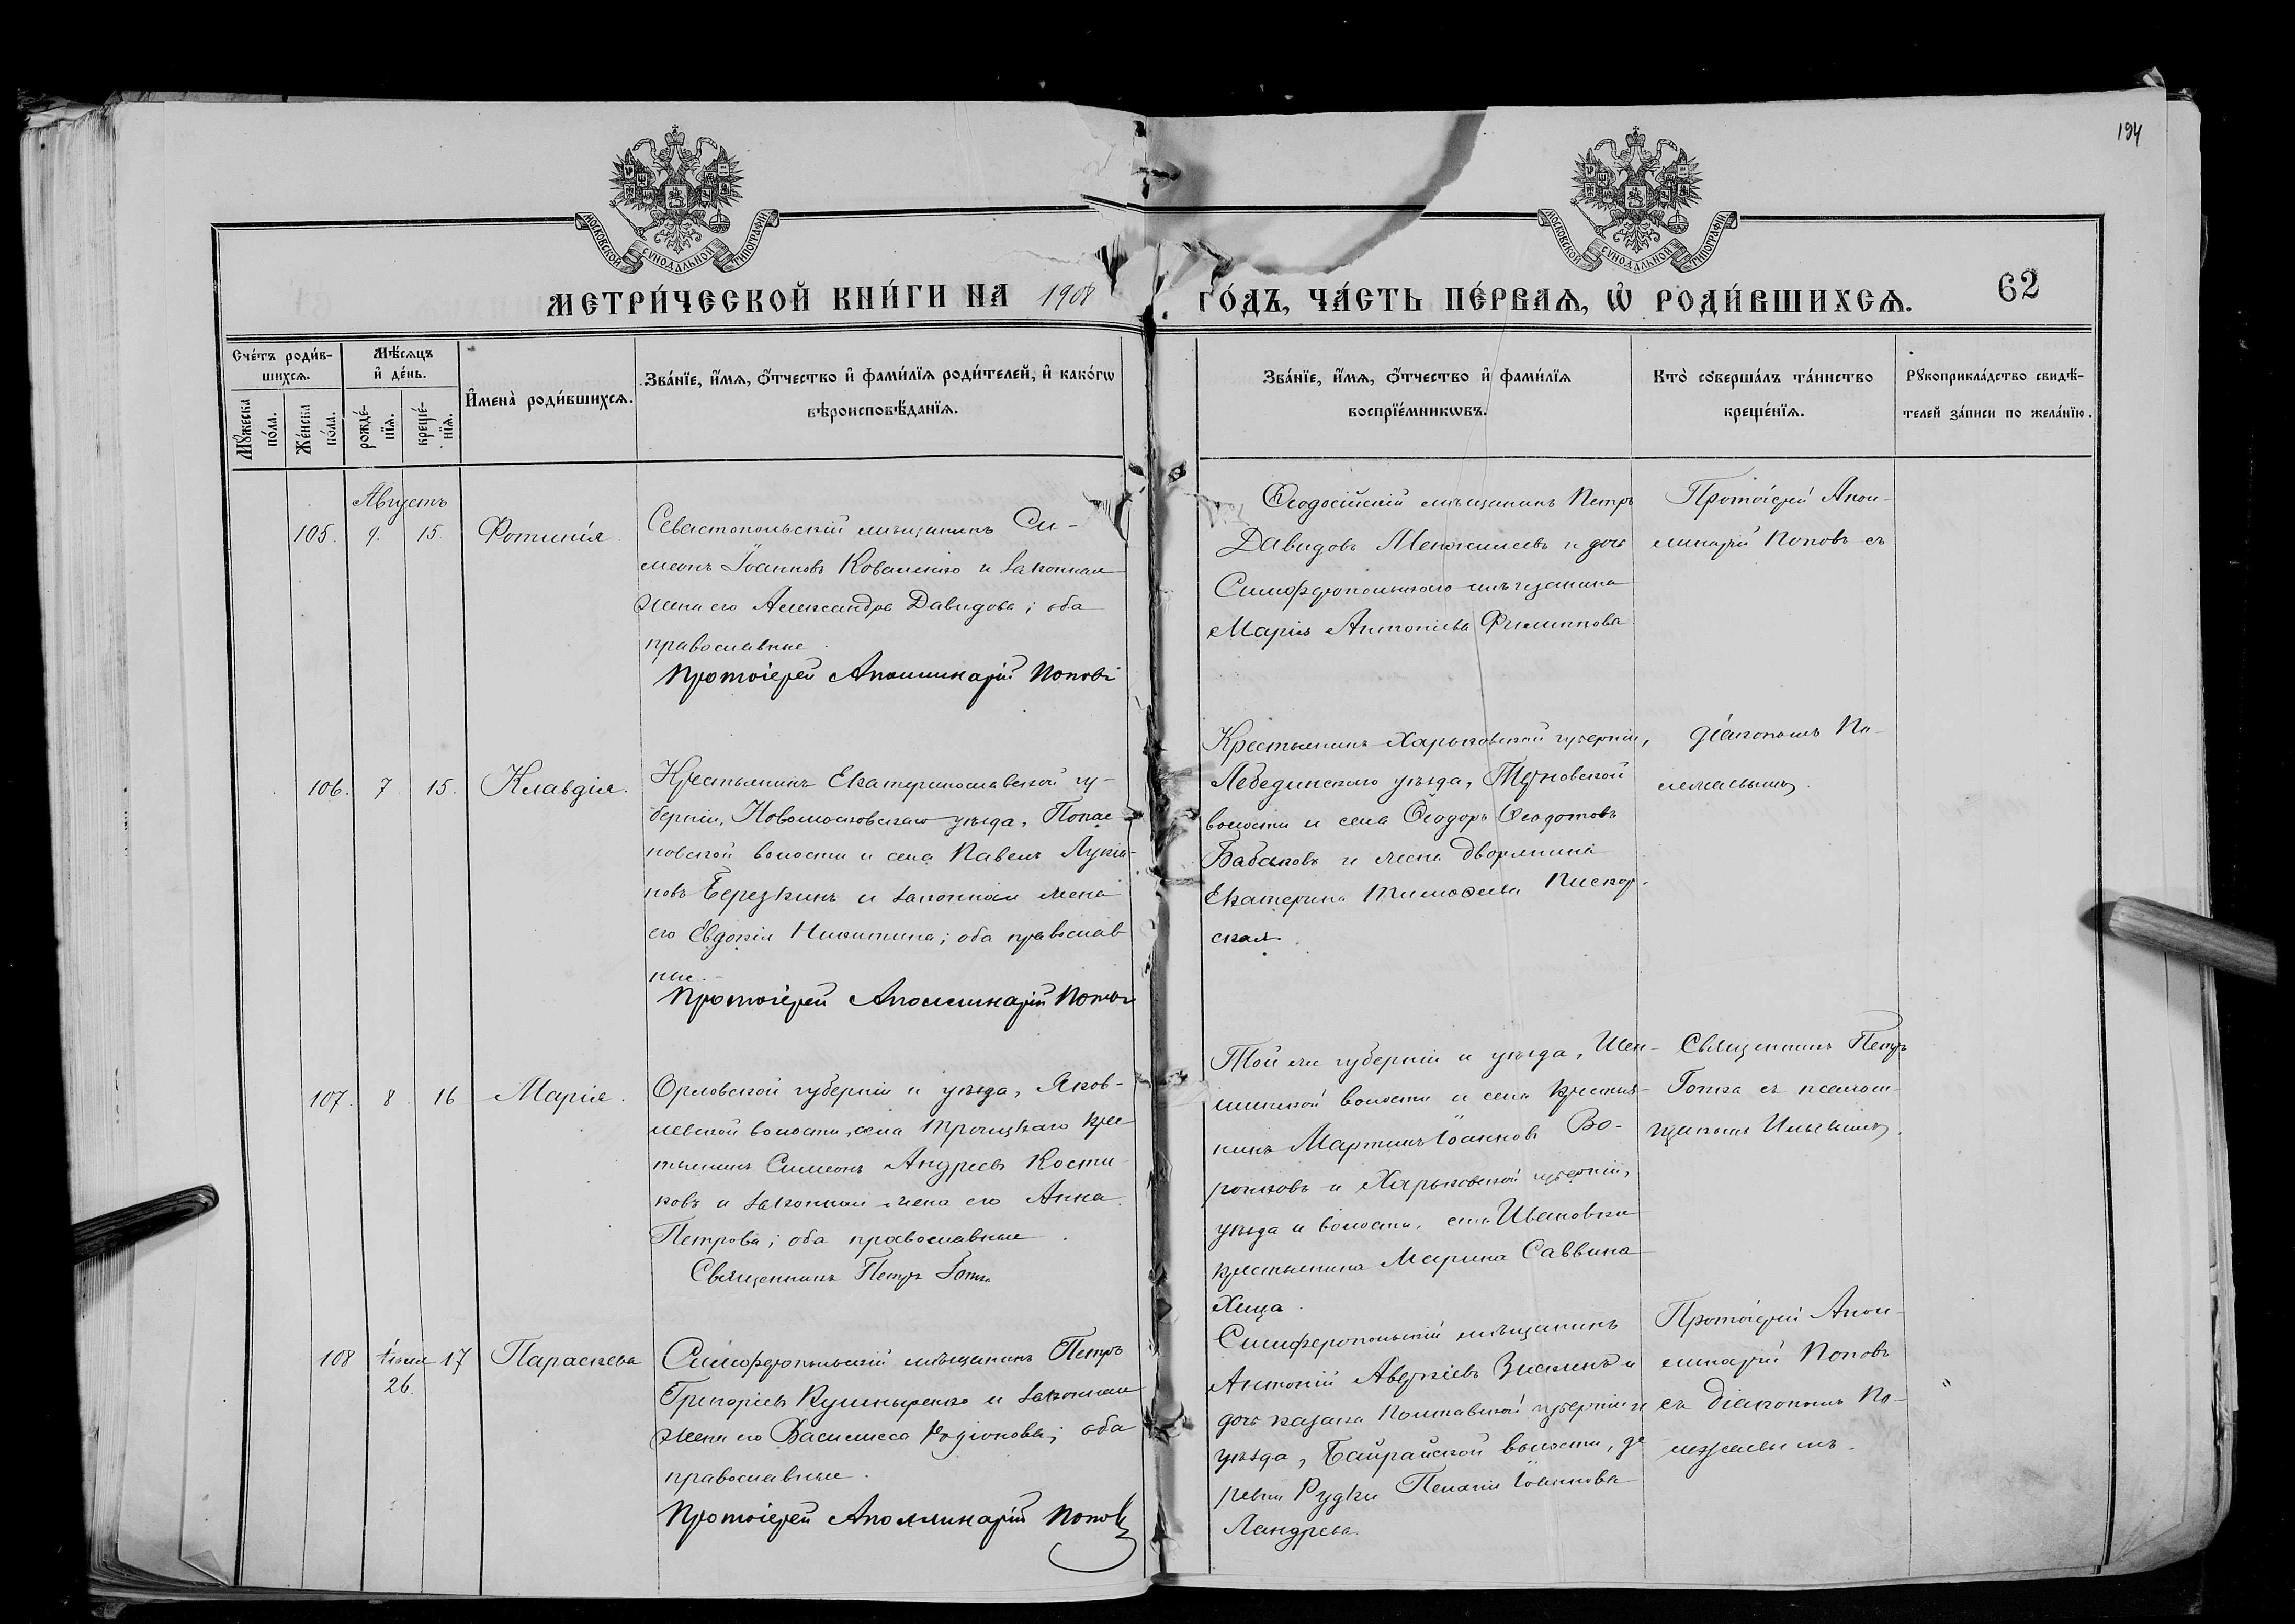 194
МОСКОВСКОЙ СѴНОДАЛЬНОЙ ТИПОГРАФІИ
МОСКОВСКОЙ СѴНОДАЛЬНОЙ ТИПОГРАФІИ
МЕТРИ́ЧЕСКОЙ КНИ́ГИ НА 1908 ГО́ДЪ, ЧА́СТЬ ПЕ́РВАЯ, Ѡ҆ РОДИ́ВШИХСЯ.
62
Сче́тъ роди́в-
шихся.
Мѣ́сяцъ
и҆ де́нь.
Мꙋ́жеска
по́ла.
Же́нска
по́ла.
рожде́-
нїя.
креще́-
нїя.
И҆мена̀ роди́вшихся.
Зва́нїе, и҆́мя, ѻ҆́тчество и҆ фами́лїя роди́телей, и҆ како́гѡ
вѣроисповѣ́данїя.
Зва́нїе, и҆́мя, ѻ҆́тчество и҆ фами́лїя
воспрїе́мникѡвъ.
Кто̀ соверша́лъ та́инство
креще́нїя.
Рꙋкоприкла́дство свидѣ́-
телей за́писи по жела́нїю.
Августъ
105. 9. 15. Фотинія.
Севастопольскій мѣщанинъ Си-
меонъ Іоанновъ Коваленко и законная
жена его Александра Давидова; оба
православные.
Протоіерей Аполлинарій Поповъ
Ѳеодосійскій мѣщанинъ Петръ
Давидовъ и дочь
Симферопольскаго мѣщанина
Марія Антоніева Филиппова
Протоіерей Апол-
линарій Поповъ съ
106. 7 15. Клавдія.
Крестьянинъ Екатеринославской гу-
берніи, Новомосковскаго уѣзда, Попас-
новской волости и села Павелъ Лукіа-
новъ Березкинъ и законная жена
его Евдокія Никитина; оба православ
ные.
Протоіерей Аполлинарій Поповъ
Крестьянинъ Харьковской губерніи,
Лебединскаго уѣзда, волости и села Ѳеодоръ Ѳеодотовъ
Бабаковъ и жена дворянина
Екатерина Тимоѳеева Пискор-
ская.
діакономъ По-
107. 8. 16 Марія.
Орловской губерніи и уѣзда, Яков-
левской волости, села Троицкаго крес
тьянинъ Симеонъ Андреевъ Кости
ковъ и законная жена его Анна
Петрова; оба православные.
Священникъ Петръ
Той же губерніи и уѣзда,
волости и села крестья-
нинъ Мартинъ Іоанновъ Во-
ронковъ и Харьковской губерніи,
уѣзда и волости, села Ивановки
крестьянина Марина Саввина
Священникъ Петръ
съ псаломщ-
щикомъ Ильинымъ.
108 Іюля 26. 17 Параскева
Симферопольскій мѣщанинъ Петръ
Григоріевъ Кушныренко и законная
жена его Василисса Родіонова; оба
православные.
Протоіерей Аполлинарій Поповъ
Симферопольскій мѣщанинъ
Антоній Аверкіевъ и
дочь казака Полтавской губерніи и
уѣзда, волости, де
ревни Рудки Пелагія Іоаннова
Протоіерей Апол-
линарій Поповъ
съ діакономъ По-